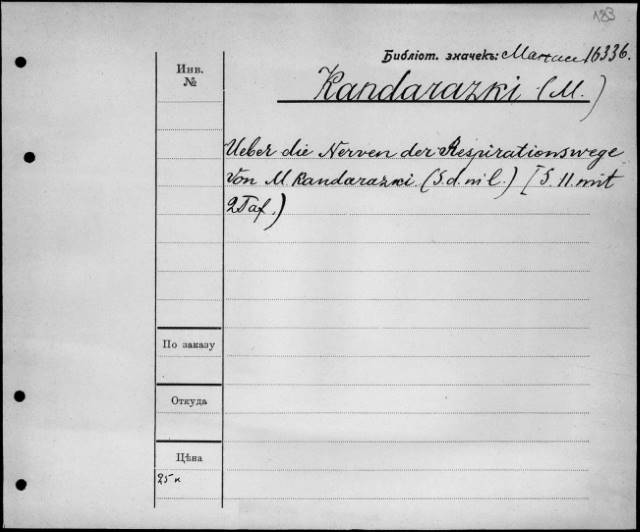 183
Библіот. значекъ: 16336.
Инв.
№
Kandarazki (M.)
Ueber die Nerven der Respirationswege
von M. Kandarazki. (S. d. ni l.) [S. 11. mit
2 Taf.)
По заказу
Откуда
Цѣна
25 к